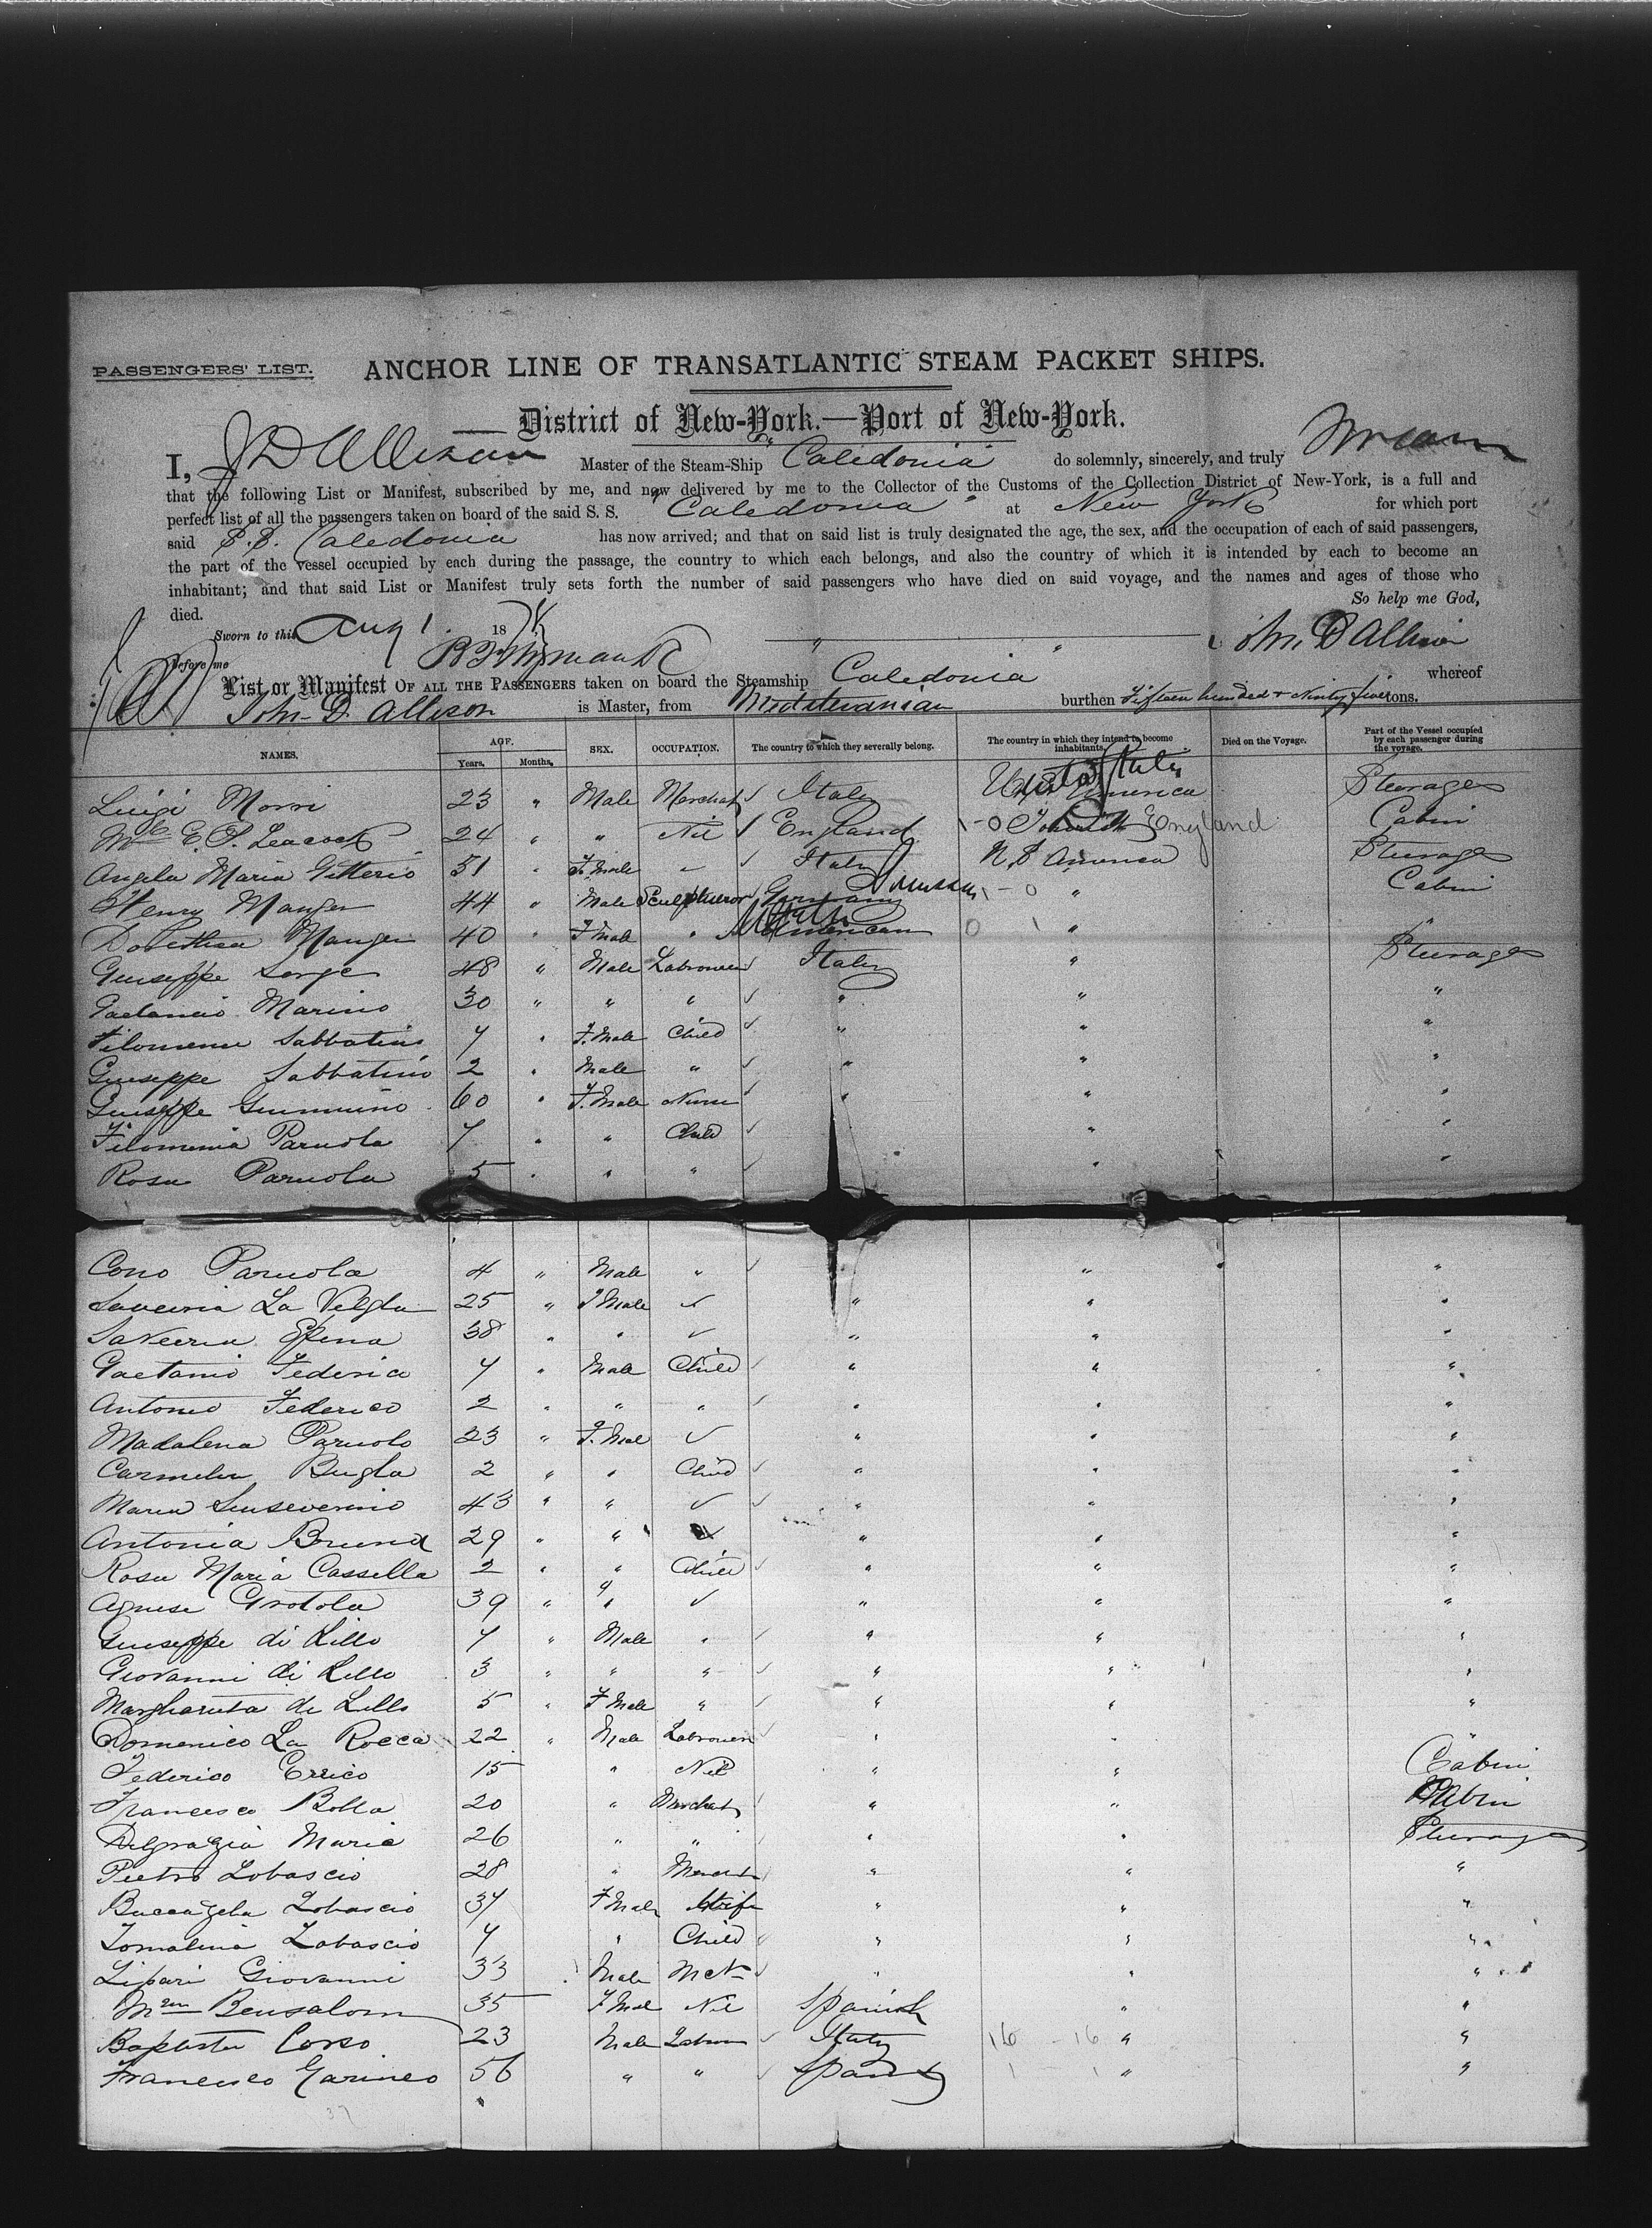 PASSENGERS' LIST. ANCHOR LINE OF TRANSATLANTIC STEAM PACKET SHIPS.
District of New-York.—Port of New-York.
I, J D Allison Master of the Steam-Ship "Caledonia" do solemnly, sincerely, and truly swear
that the following List or Manifest, subscribed by me, and now delivered by me to the Collector of the Customs of the Collection District of New-York, is a full and
perfect list of all the passengers taken on board of the said S. S. "Caledonia" at New York for which port
said S.S. Caledonia has now arrived; and that on said list is truly designated the age, the sex, and the occupation of each of said passengers,
the part of the vessel occupied by each during the passage, the country to which each belongs, and also the country of which it is intended by each to become an
inhabitant; and that said List or Manifest truly sets forth the number of said passengers who have died on said voyage, and the names and ages of those who
died. So help me God,
Sworn to this Aug 1 18 " " John D Allison
Before me
List or Manifest OF ALL THE PASSENGERS taken on board the Steamship Caledonia whereof
John D. Allison is Master, from Mediterranian burthen Fifteen hundred & Ninty five tons.
NAMES. AGE. Years. Months. SEX. OCCUPATION. The country to which they severally belong. The country in which they intend to become inhabitants. Died on the Voyage. Part of the Vessel occupied by each passenger during the voyage.
Luigi Morri 23 " Male Merchat Italy United States America Steerage
E. P. Leacock 24 " " Nil England England Cabin
Angela Maria Gitterio 31 " F. Male " Italy N. S America Steerage
Henry Manger 44 " Male Sculptueror Germany Prussia 1 - 0 " Cabin
Dorethea Manger 40 " F Male " American 0 1 "
Guiseppe Sorge 48 " Male Labrourer Italy " Steerage
Gaetancio Marino 30 " " " " " "
Filomena Sabbatino 7 " F. Male Child " " "
Guiseppe Sabbatino 2 " Male " " " "
Guiseppe Gummino 60 " F. Male Nurse " " "
Filomenia Paruola 7 " " Child " "
Rosa Paruola 5 " " " " "
Cono Paruola 4 " Male " " "
Saveria La Velgla 25 " F Male " " "
Saveria Spena 38 " " " " "
Gaetano Federico 7 " Male Child " " "
Antonio Federico 2 " " " " " "
Madalena Paruolo 23 " F. Mal " " "
Carmela Bugla 2 " " Child " " "
Maria Sanseverino 43 " " " " "
Antonia Bruna 29 " " " " "
Rosa Maria Cassella 2 " " Child " " "
Agnese Grotola 39 " " " " "
Guiseppe di Lillo 7 " Male " " " "
Giovanni di Lillo 3 " " " " " "
Margharita di Lillo 5 " F Male " " " "
Domenico La Rocca 22 " Male Labrourer " " "
Federico Errico 15 " Nil " " Cabin
Francesco Bolla 20 " Merchat " " Cabin
Delgrazia Maria 26 " " " " Steerage
Pietro Lobascio 28 " Mercht " " "
Lobascio 37 F Male Wife " " "
Tomalina Lobascio 7 " Child " " "
Lipari Giovanni 33 Male Mcht " " "
Bensalom 35 F Mal Nil Spanish " "
Baptista Corso 23 Male Labrour Italy 16 - 16 " "
Francesco Garineo 56 " " Spain 1 1 " "
37